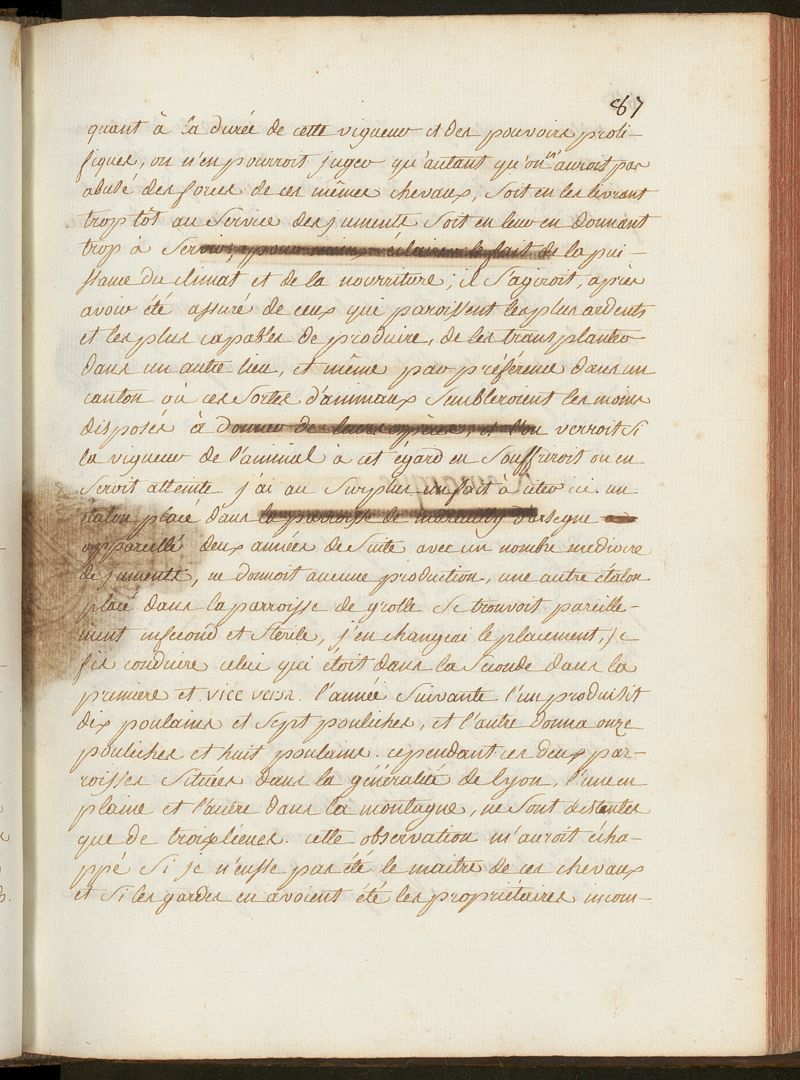 87
quant à la durée de cette vigueur et des pouvoirs proli-
fiques, on n'en pourroit juger qu'autant qu'on n'auroit pas
abusé des forces de ces mêmes chevaux, soit en les livrant
trop tôt au service des juments soit en leur en donnant
trop à servir; pour mieux éclaircir le fait de la puis-
sance du climat et de la nourriture; il s'agiroit, après
avoir été assuré de ceux qui paroissent les plus ardents
et les plus capables de produire, de les transplanter
dans un autre lieu, et même par préférence dans un
canton où ces sortes d'animaux sembleroient les moins
disposés à donner de leurs espèces, et l'on verroit si
la vigueur de l'animal à cet égard en souffriroit ou en
seroit atteinte j'ai au surplus un fait à citer ici. un
étalon placé dans la parroisse de d'arsegne
appareillé deux années de suite avec un nombre mediocre
de juments, ne donnoit aucune production, une autre étalon
placé dans la parroisse de grolle se trouvoit pareille-
ment infecond et sterile, j'en changeai le placement, je
fis conduire celui qui étoit dans la seconde dans la
premiere et vice versa. l'année suivante l'un produisit
dix poulains et sept pouliches, et l'autre donna onze
pouliches et huit poulains. cependant ces deux par-
roisses situées dans la généralité de lyon, l'une en
plaine et l'autre dans la montagne, ne sont distantes
que de trois lieues. cette observation m'auroit écha-
ppé si je n'eusse pas été le maitre de ces chevaux
et si les gardes en avoient été les propriétaires incom-